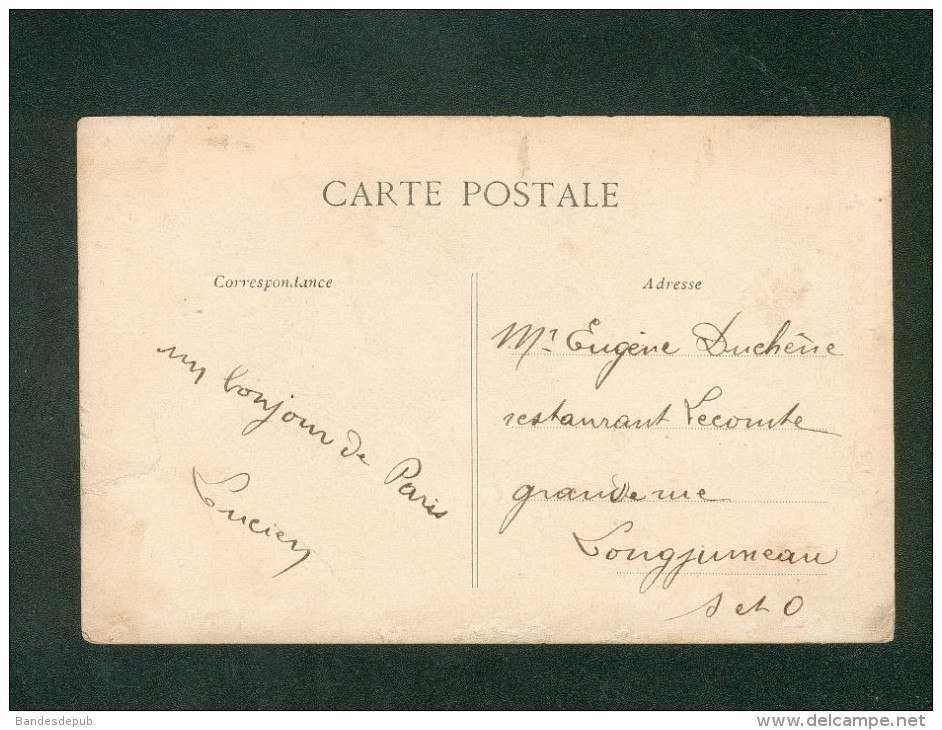 CARTE POSTALE
Correspondance
un bonjour de Paris
Lucien
Adresse
Mr Eugène Duchêne
restaurant Lecomte
grande rue
Longjumeau
S et O
Bandesdepub
www.delcampe.net